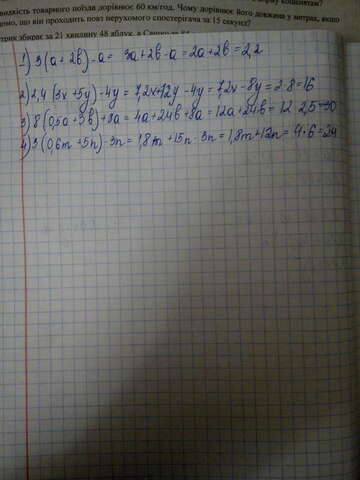 швидкість товарного поїзда дорівнює 60 км/год. Чому дорівнює його довжина у метрах, якщо
відомо, що він проходить повз нерухомого спостерігача за 15 секунд?
збирає за 21 хвилину 48 яблук, а
1) 3(a + 2b) - a = 3a + 2b - a = 2a + 2b = 2,2
2) 2,4(3x + 5y) - 4y = 7,2x + 12y - 4y = 7,2x - 8y = 2·8 = 16
3) 8(0,5a + 3b) + 8a = 4a + 24b + 8a = 12a + 24b = 12·2,5 = 30
4) 3(0,6m + 5n) - 3n = 1,8m + 15n - 3n = 1,8m + 12n = 4·6 = 24